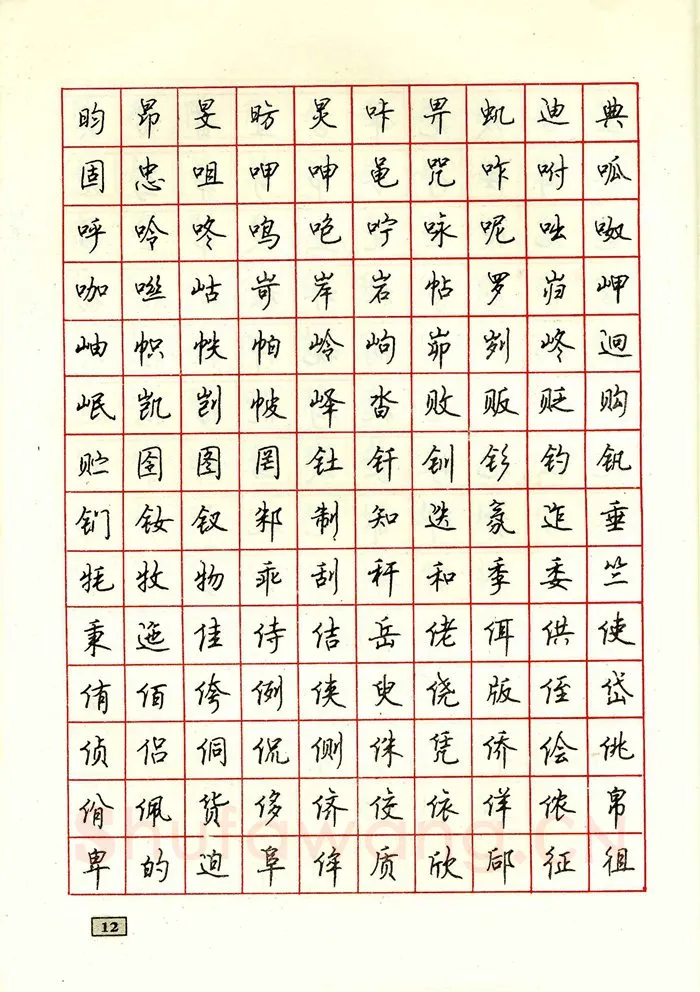 昀 昂 旻 昉 炅 咔 畀 虬 迪 典
固 忠 咀 呷 呻 黾 咒 咋 咐 呱
呼 呤 咚 鸣 咆 咛 咏 呢 咄 呶
咖 咝 岵 岢 岸 岩 帖 罗 岿 岬
岫 帜 帙 帕 岭 岣 峁 刿 峂 迥
岷 凯 剀 帔 峄 沓 败 贩 贬 购
贮 囹 图 罔 钍 钎 钏 钐 钓 钒
钔 钕 钗 邾 制 知 迭 氛 迮 垂
牦 牧 物 乖 刮 秆 和 季 委 竺
秉 迤 佳 侍 佶 岳 佬 佴 供 使
侑 佰 侉 例 侠 臾 侥 版 侄 岱
侦 侣 侗 侃 侧 侏 凭 侨 侩 佻
佾 佩 货 侈 侪 佼 依 佯 侬 帛
卑 的 迫 阜 侔 质 欣 郈 征 徂
12
shufawang.CN